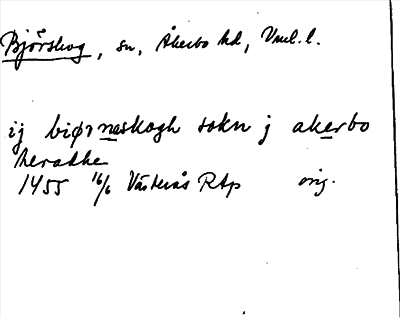 Björskog, sn, Åkerbo hd, Vml. l.
ij biørneskogh sokn j akerbo
heradhe
1455 16/6 Västerås RAp orig.